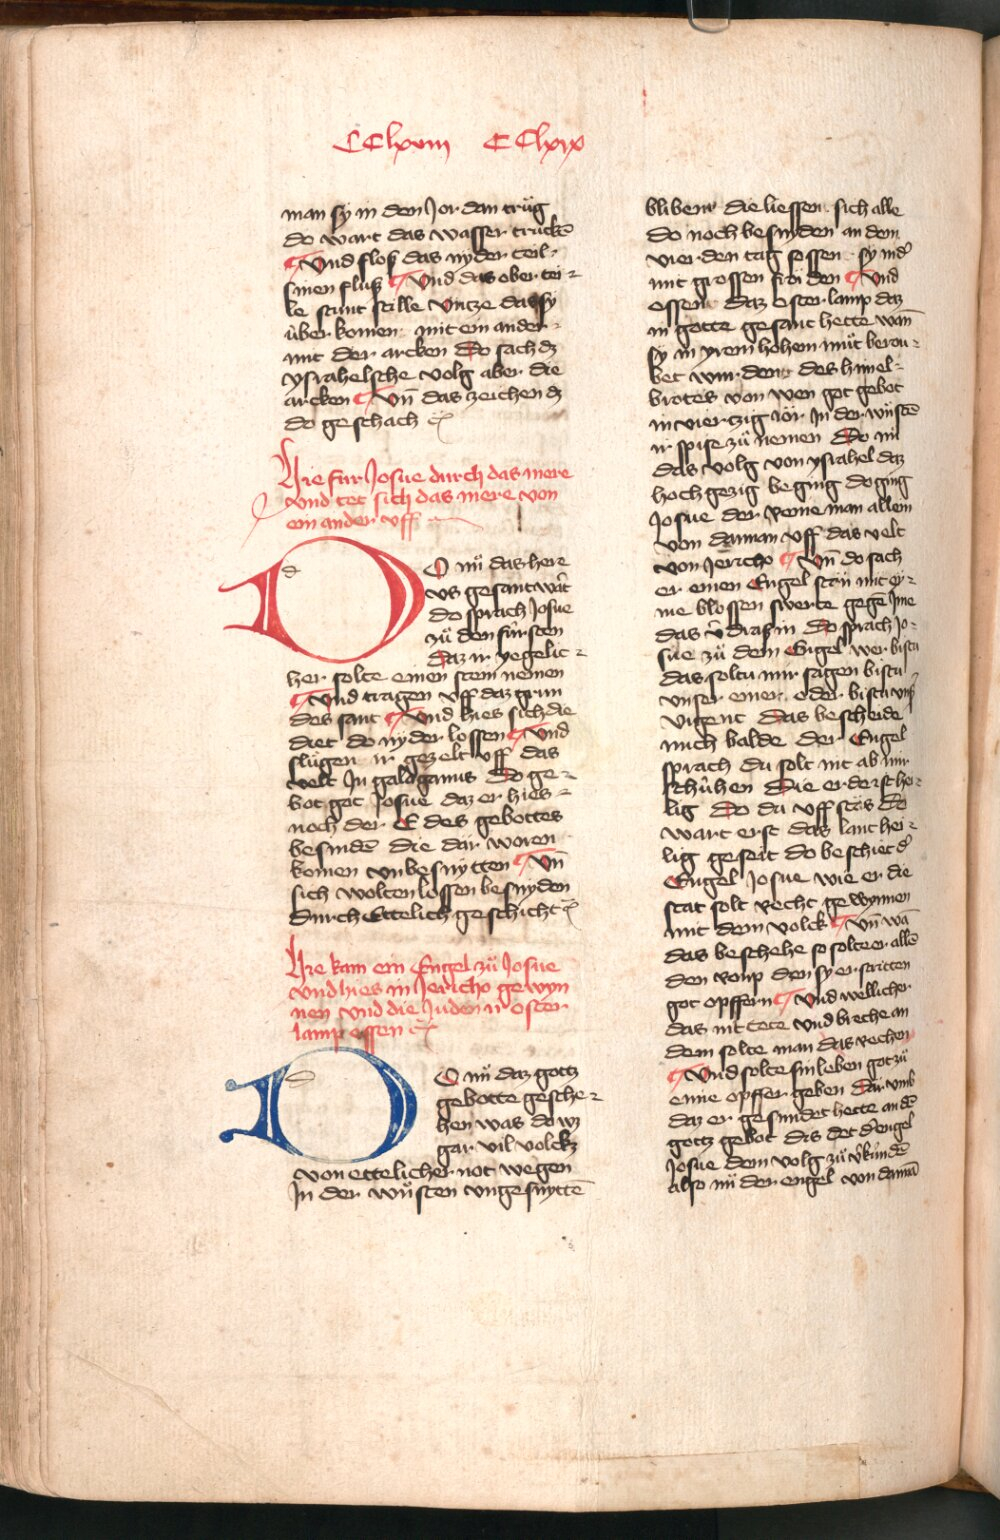 CClxviii CClxix
man sy in den Jordan trůg
do wart das wasser truckē
¶ Und flos das nyder teil
sinen fluß ¶ Und das ober tei-
le stunt stille Untze das sy
über komen mit ein ander
mit der arcken Do sach dz
ysrahelsche volg aber die
arcken ¶ Un̄ das zeichen dz
do geschach
Hie für Josue durch das mere
und tet sich das mere von
ein ander uff
DO nů das here
us gesant wart
do sprach Josue
zů den fürsten
Daz ir yegelic-
her solte einen stein nemen
¶ Und tragen uff daz grun
des sant ¶ Und hies sich die
diet do nyder lossen ¶ Und
slůgen ir gezelt uff das
velt In galdganus Do ge-
bot got Josue daz er hies
noch der E des gebottes
besniden die dar woren
komen unbesnytten ¶ Un̄
sich wolten lossen besnyden
durch Ettelich geschicht
Hie kam ein Engel zů Josue
und hies in Jericho gewyn
nen und die Juden ir oster
lamp essen
DO nů daz gottz
gebotte gesche-
hen was do wz
gar vil volckz
von ettelicher not wegen
In der wůsten ungesnyttē
blibent die liessen sich alle
do noch besnyden an dem
vierden tag sossen sy nider
mit grossen froiden ¶ Und
essen daz oster lamp daz
in gotte gesant hette wan̄
sy in yrem hohem můt berou-
bet wurdent des himel-
brotes von wen got gebot
in viertzig jor In der wůstē
ir spise zů nemen Do nů
das volg von ysrahel daz
hochgezig beging do ging
Josue der reine man allein
von dannan uff das velt
von Jericho ¶ Un̄ do sach
er einen Engel stan mit ey-
me blossen swerte gegē Ime
das in Do sprach Jo-
sue zů dem Engel wer bistu
das soltu mir sagen bistu
unser einer oder bistu unß
vigent Das bescheide
mich balde der Engel
sprach du solt nit ab mir
schühen Die erde ist hei-
lig Do du uff stös Do
wart erst das lant hei-
lig geseit do beschiet der
Engel Josue wie er die
stat solt recht gewynnen
mit dem volck ¶ Un̄ wā
das beschehe so solte er allē
den roup den sy erstritten
got opffern ¶ Und wellicher
das nit tete und breche an
dem solte man das rechen
¶ Und solte sin leben got zů
eime opffer geben Dar umb
daz er gesundet hette an dē
gottz gebot Dis det d' engel
Josue dem volg zů v'kündē
also nů der engel von dannā